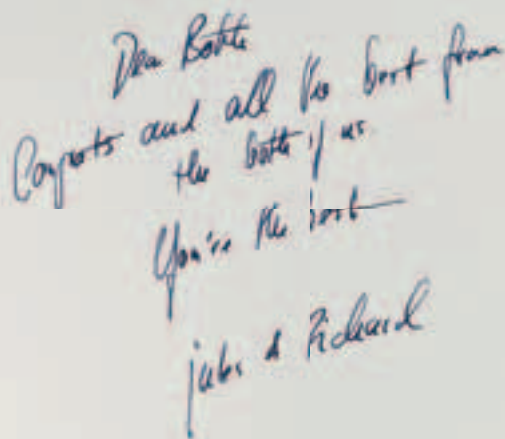 Dear Bottle
Congrats and all the best from
the bottle of us
You're the best
jules & Richard